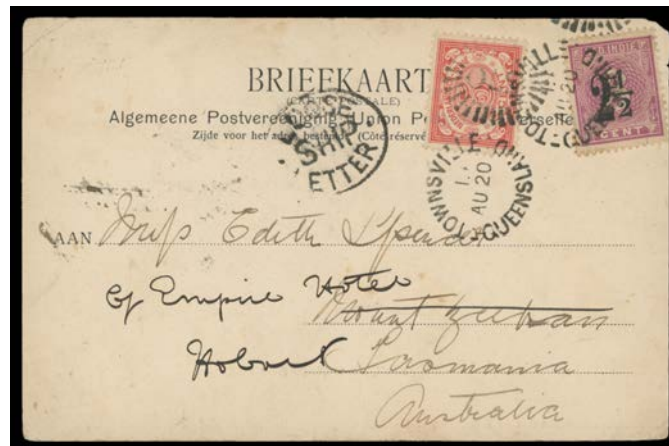 BRIEFKAART
(CARTE POSTALE)
Algemeene Postvereeniging (Union Postale Universelle
Zijde voor het adres bestemd (Côté réservé
SHIP
LETTER
2½
CENT
TOWNSVILLE
AU 20
QUEENSLAND
AAN Miss Edith Spencer
c/ Empire Hotel
Mount Zeehan
Hobart Tasmania
Australia